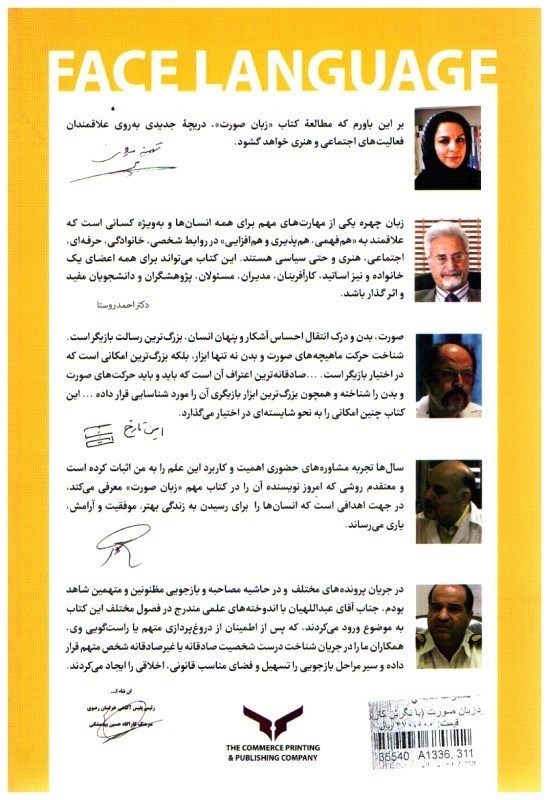 FACE LANGUAGE
بر این باورم که مطالعهٔ کتاب «زبان صورت»، دریچهٔ جدیدی به‌روی علاقمندان
فعالیت‌های اجتماعی و هنری خواهد گشود.
زبان چهره یکی از مهارت‌های مهم برای همه انسان‌ها و به‌ویژه کسانی است که
علاقمند به «هم‌فهمی، هم‌پذیری و هم‌افزایی» در روابط شخصی، خانوادگی، حرفه‌ای،
اجتماعی، هنری و حتی سیاسی هستند. این کتاب می‌تواند برای همه اعضای یک
خانواده و نیز اساتید، کارآفرینان، مدیران، مسئولان، پژوهشگران و دانشجویان مفید
و اثر گذار باشد.
دکتر احمد روستا
صورت، بدن و درک انتقال احساس آشکار و پنهان انسان، بزرگ‌ترین رسالت بازیگر است.
شناخت حرکت ماهیچه‌های صورت و بدن نه تنها ابزار، بلکه بزرگ‌ترین امکانی است که
در اختیار بازیگر است. ...صادقانه‌ترین اعتراف آن است که باید و باید حرکت‌های صورت
و بدن را شناخته و همچون بزرگ‌ترین ابزار بازیگری آن را مورد شناسایی قرار داده ... این
کتاب چنین امکانی را به نحو شایسته‌ای در اختیار می‌گذارد.
سال‌ها تجربه مشاوره‌های حضوری اهمیت و کاربرد این علم را به من اثبات کرده است
و معتقدم روشی که امروز نویسنده آن را در کتاب مهم «زبان صورت» معرفی می‌کند،
در جهت اهدافی است که انسان‌ها را برای رسیدن به زندگی بهتر، موفقیت و آرامش،
یاری می‌رساند.
در جریان پرونده‌های مختلف و در حاشیه مصاحبه و بازجویی مظنونین و متهمین شاهد
بودم، جناب آقای عبداللهیان با اندوخته‌های علمی مندرج در فصول مختلف این کتاب
به موضوع ورود می‌کردند، که پس از اطمینان از دروغ‌پردازی متهم یا راست‌گویی وی،
همکاران ما را در جریان شناخت درست شخصیت صادقانه یا غیرصادقانه شخص متهم قرار
داده و سیر مراحل بازجویی را تسهیل و فضای مناسب قانونی، اخلاقی را ایجاد می‌کردند.
ان شاء ا...
رئیس پلیس آگاهی خراسان رضوی
سرهنگ کارآگاه حسین بیدمشکی
THE COMMERCE PRINTING
& PUBLISHING COMPANY
زبان صورت (با نگرش کار
قیمت: ریال
35540 A1336, 311